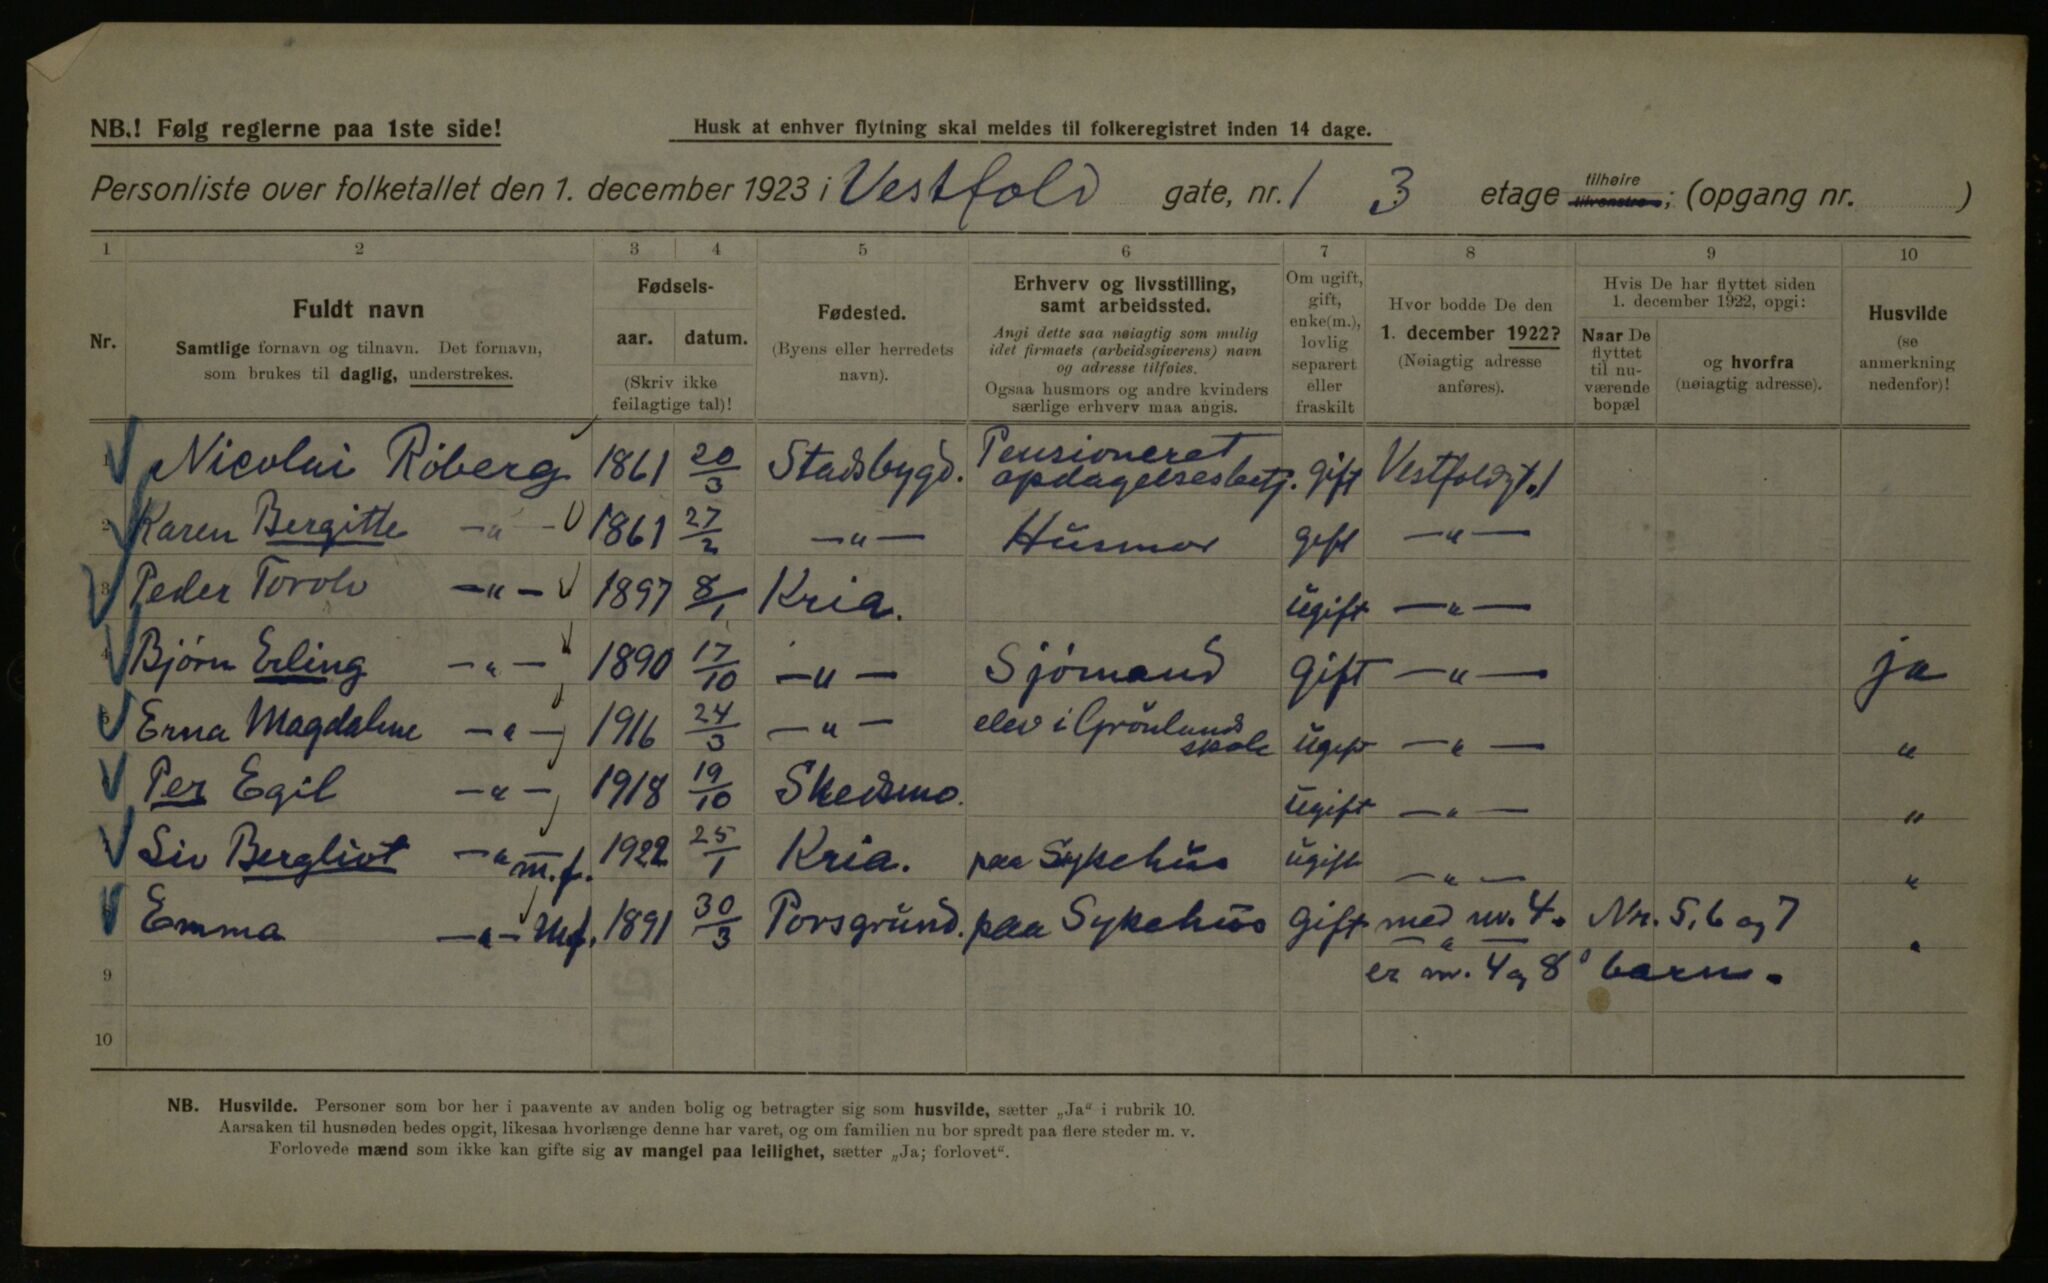 NB.! Følg reglerne paa 1ste side!
Husk at enhver flytning skal meldes til folkeregistret inden 14 dage.
Personliste over folketallet den 1. december 1923 i Vestfold gate, nr. 1 3 etage tilhøire tilvenstre; (opgang nr. )
1 2 3 4 5 6 7 8 9 10
Nr.
Fuldt navn
Samtlige fornavn og tilnavn. Det fornavn,
som brukes til daglig, understrekes.
Fødsels-
aar. datum.
(Skriv ikke
feilagtige tal)!
Fødested.
(Byens eller herredets
navn).
Erhverv og livsstilling,
samt arbeidssted.
Angi dette saa nøiagtig som mulig
idet firmaets (arbeidsgiverens) navn
og adresse tilføies.
Ogsaa husmors og andre kvinders
særlige erhverv maa angis.
Om ugift,
gift,
enke(m.),
lovlig
separert
eller
fraskilt
Hvor bodde De den
1. december 1922?
(Nøiagtig adresse
anføres).
Hvis De har flyttet siden
1. december 1922, opgi:
Naar De
flyttet
til nu-
værende
bopæl
og hvorfra
(nøiagtig adresse).
Husvilde
(se
anmerkning
nedenfor)!
1 Nicolai Röberg 1861 20/3 Stadsbygd. Pensioneret opdagelsesbetj. gift Vestfoldgt. 1
2 Karen Bergitte —"— 1861 27/2 —"— Husmor gift —"—
3 Peder Torolv —"— 1897 8/1 Kria. ugift —"—
4 Bjørn Erling —"— 1890 17/10 —"— Sjömand gift —"— ja
5 Erna Magdalene —"— 1916 24/3 —"— elev i Grönlands skole ugift —"— "
Per Egil —"— 1918 19/10 Skedsmo. ugift —"— "
Siv Bergliot —"— m.f. 1922 25/1 Kria. paa Sykehus ugift —"— "
Emma —"— M.f. 1891 30/3 Porsgrund. paa Sykehus gift med nr. 4. Nr. 5, 6 og 7 "
—"—
9 er nr. 4 og 8's barn.
10
NB. Husvilde. Personer som bor her i paavente av anden bolig og betragter sig som husvilde, sætter „Ja" i rubrik 10.
Aarsaken til husnøden bedes opgit, likesaa hvorlænge denne har varet, og om familien nu bor spredt paa flere steder m. v.
Forlovede mænd som ikke kan gifte sig av mangel paa leilighet, sætter „Ja; forlovet".